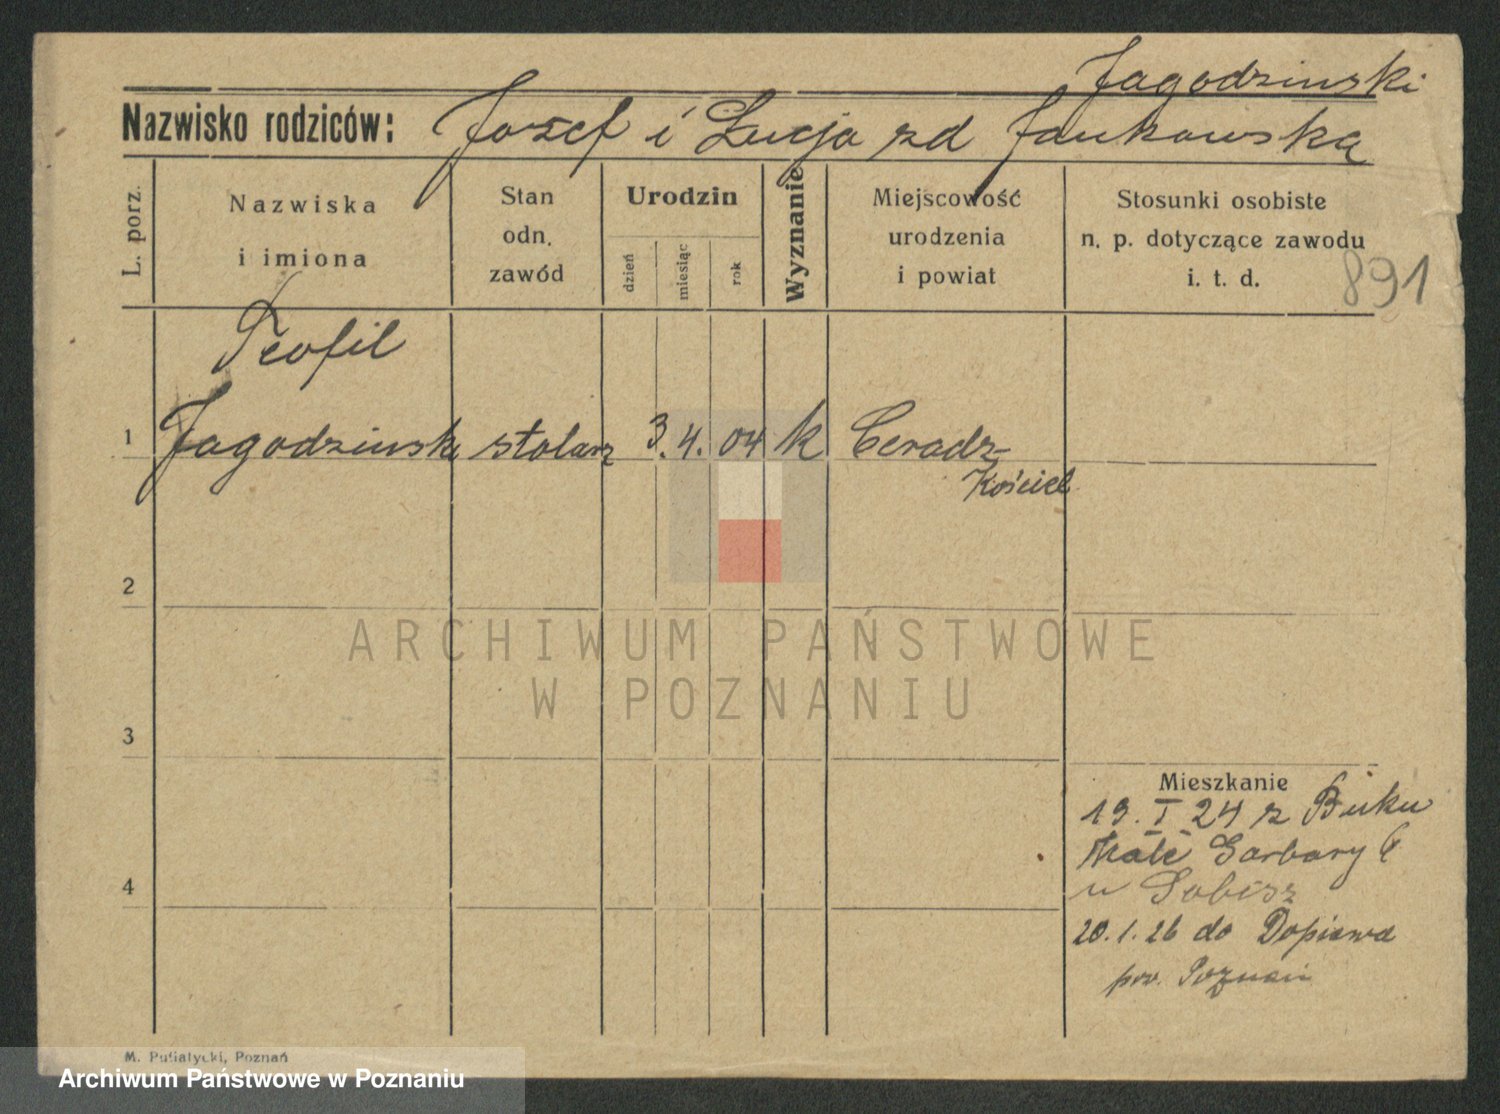 Jagodzinski
Nazwisko rodziców: Jozef i Łucja zd Jankowska
L. porz.
Nazwiska
i imiona
Stan
odn.
zawód
Urodzin
dzień
miesiąc
rok
Wyznanie
Miejscowość
urodzenia
i powiat
Stosunki osobiste
n. p. dotyczące zawodu
i. t. d.
891
Teofil
1 Jagodzinski stolarz 3. 4. 04 k Ceradz-
Kościel
2
ARCHIWUM PAŃSTWOWE
W POZNANIU
3
Mieszkanie
19. I 24 z Buku
Małe Garbary 6
u Sobisz
4
20. 1. 26 do Dopiewa
pow. Poznań
M. Putiatycki, Poznań
Archiwum Państwowe w Poznaniu